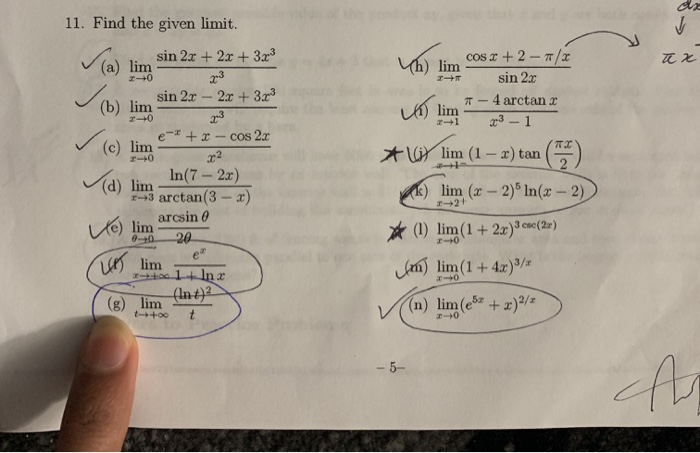 11. Find the given limit.
(a) lim x→0 (sin 2x + 2x + 3x³)/x³
(b) lim x→0 (sin 2x − 2x + 3x³)/x³
(c) lim x→0 (e⁻ˣ + x − cos 2x)/x²
(d) lim x→3 ln(7 − 2x)/arctan(3 − x)
(e) lim θ→0 arcsin θ/2θ
(f) lim x→+∞ eˣ/(1 + ln x)
(g) lim t→+∞ (ln t)²/t
(h) lim x→π (cos x + 2 − π/x)/sin 2x
(i) lim x→1 (π − 4 arctan x)/(x³ − 1)
(j) lim x→1⁻ (1 − x) tan (πx/2)
(k) lim x→2⁺ (x − 2)⁵ ln(x − 2)
(l) lim x→0 (1 + 2x)^(3 csc(2x))
(m) lim x→0 (1 + 4x)^(3/x)
(n) lim x→0 (e^(5x) + x)^(2/x)
dx
↓
πx⁻
− 5−